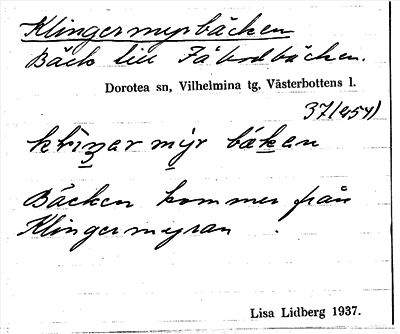 Klingermyrbäcken
Bäck till Fäbodbäcken.
Dorotea sn, Vilhelmina tg, Västerbottens l.
37/(254)
myr
Bäcken kommer från
Klingermyran.
Lisa Lidberg 1937.